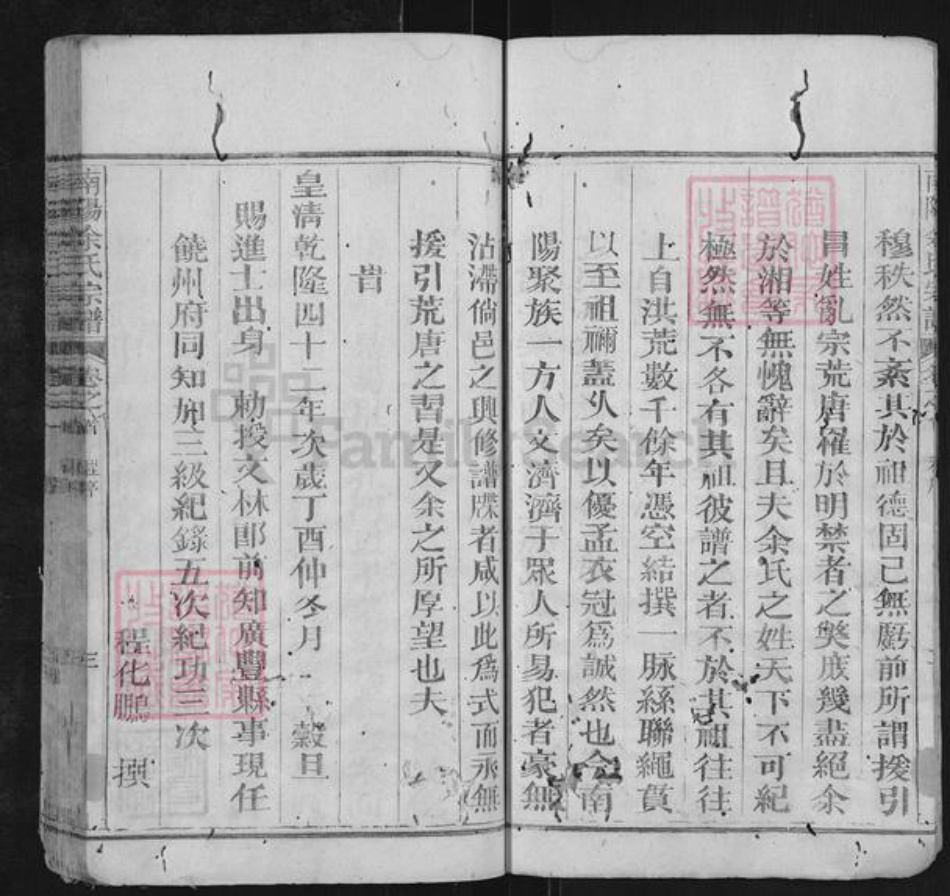 穆秩然不紊其於祖德固已無虧前所謂援引
冒姓亂宗荒唐罹於明禁者之獘庶幾盡絕余
於湘等無愧辭矣且夫余氏之姓天下不可紀
極然無不各有其祖彼譜之者不於其祖往往
上自洪荒數千餘年憑空結撰一脉絲聯繩貫
以至祖禰蓋久矣以優孟衣冠爲誠然也今南
陽聚族一方人文濟濟于眾人所易犯者豪無
沾滯倘邑之興修譜牒者咸以此爲式而永無
援引荒唐之習是又余之所厚望也夫
旹
皇清乾隆四十二年次歲丁酉仲冬月 穀旦
賜進士出身 勅授文林郎前知廣豐縣事現任
饒州府同知加三級紀錄五次紀功三次
程化鵬 撰
南陽余氏宗譜 卷之首 程序 三
FamilySearch